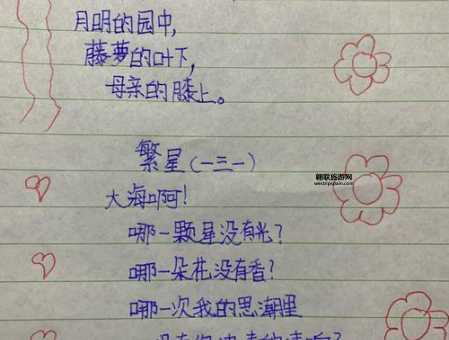 月明的园中,
藤萝的叶下,
母亲的膝上。
繁星(一三一)
大海啊!
哪一颗星没有光?
哪一朵花没有香?
哪一次我的思潮里